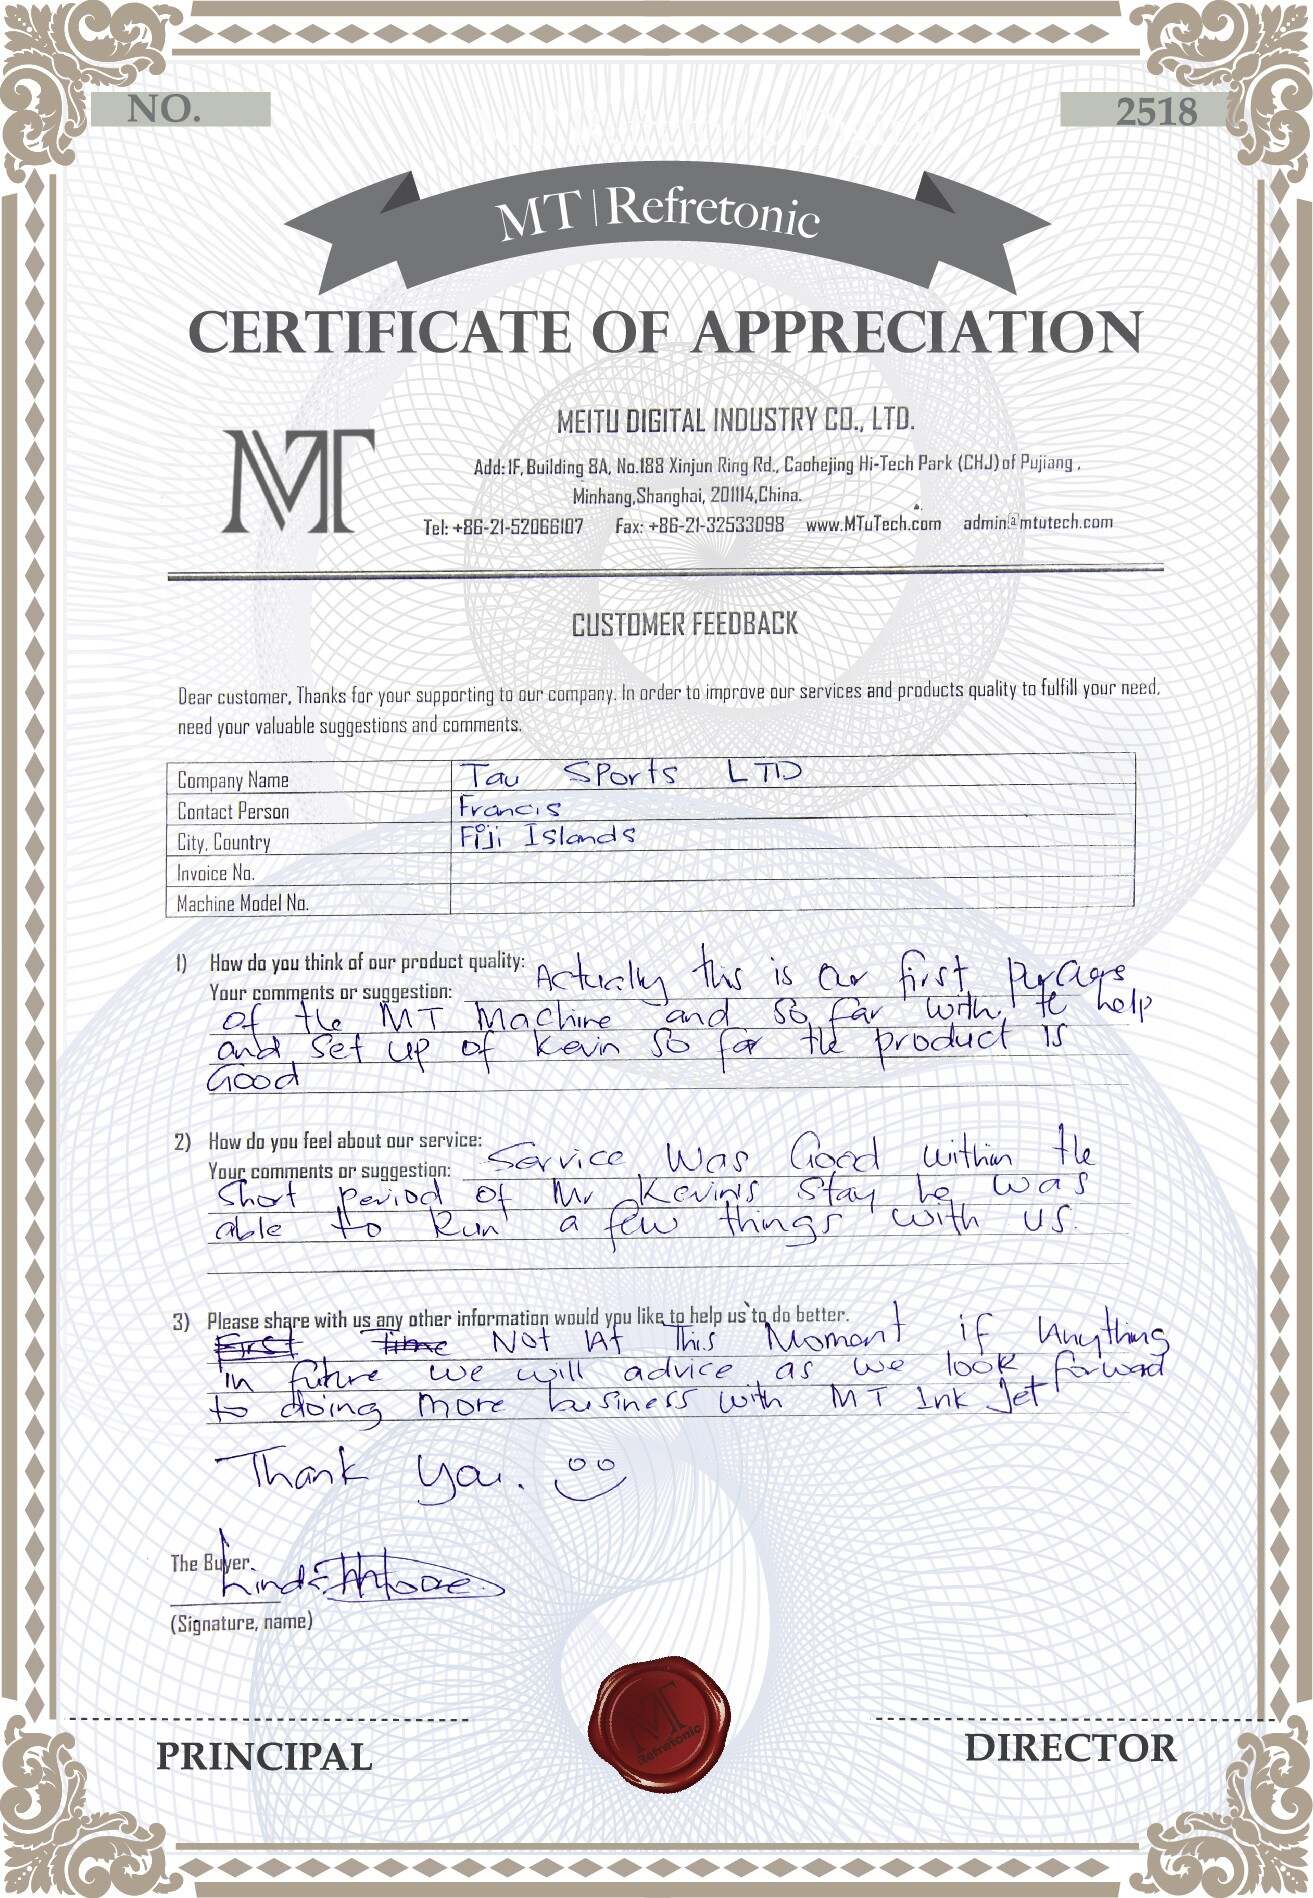 NO.
2518
MT | Refretonic
CERTIFICATE OF APPRECIATION
MT
MEITU DIGITAL INDUSTRY CO., LTD.
Add: 1F, Building 8A, No.188 Xinjun Ring Rd., Caohejing Hi-Tech Park (CHJ) of Pujiang,
Minhang,Shanghai, 201114,China.
Tel: +86-21-52066107 Fax: +86-21-32533098 www.MTuTech.com admin@mtutech.com
CUSTOMER FEEDBACK
Dear customer, Thanks for your supporting to our company. In order to improve our services and products quality to fulfill your need,
need your valuable suggestions and comments.
Company Name Tau SPorts LTD
Contact Person Francis
City, Country Fiji Islands
Invoice No.
Machine Model No.
1) How do you think of our product quality:
Your comments or suggestion: Actually this is our first
of the MT Machine and so far with the help
and set up of Kevin so far the product is
Good
2) How do you feel about our service:
Your comments or suggestion: Service Was Good within the
Short period of Mr Kevin's Stay he was
able to Run a few things with us.
3) Please share with us any other information would you like to help us to do better.
First Time Not At This Moment if Anything
in future we will advice as we look forward
to doing more business with MT Ink Jet
Thank you.
The Buyer.
Linda
(Signature, name)
MT
Refretonic
PRINCIPAL
DIRECTOR